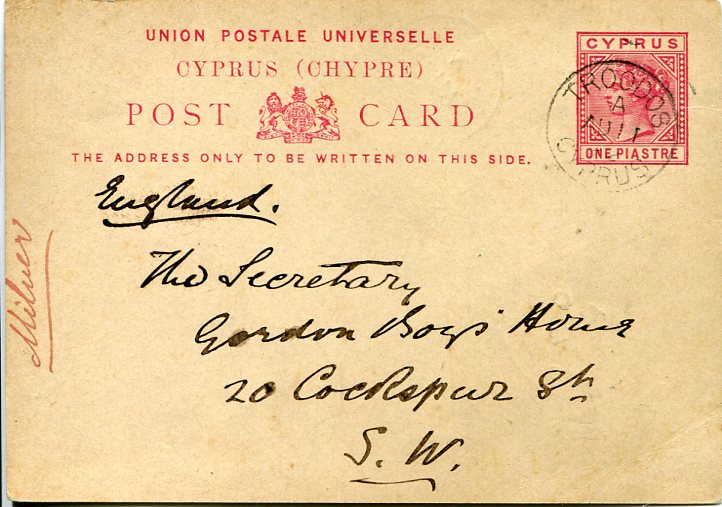 UNION POSTALE UNIVERSELLE
CYPRUS (CHYPRE)
POST CARD
THE ADDRESS ONLY TO BE WRITTEN ON THIS SIDE.
CYPRUS
ONE PIASTRE
TROODOS
A
CYPRUS
England.
The Secretary
Gordon Boys' Home
20 Cockspur St
S. W.
Milner